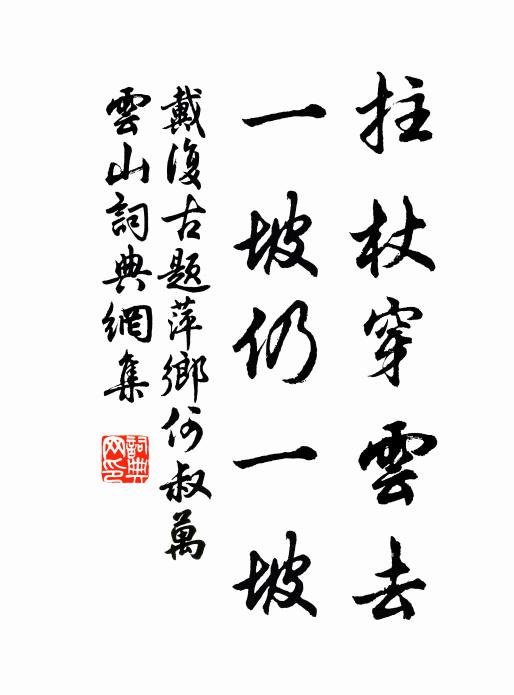 拄杖穿雲去
一坡仍一坡
戴復古題萍鄉何叔萬
雲山詞典網集
詞典網印